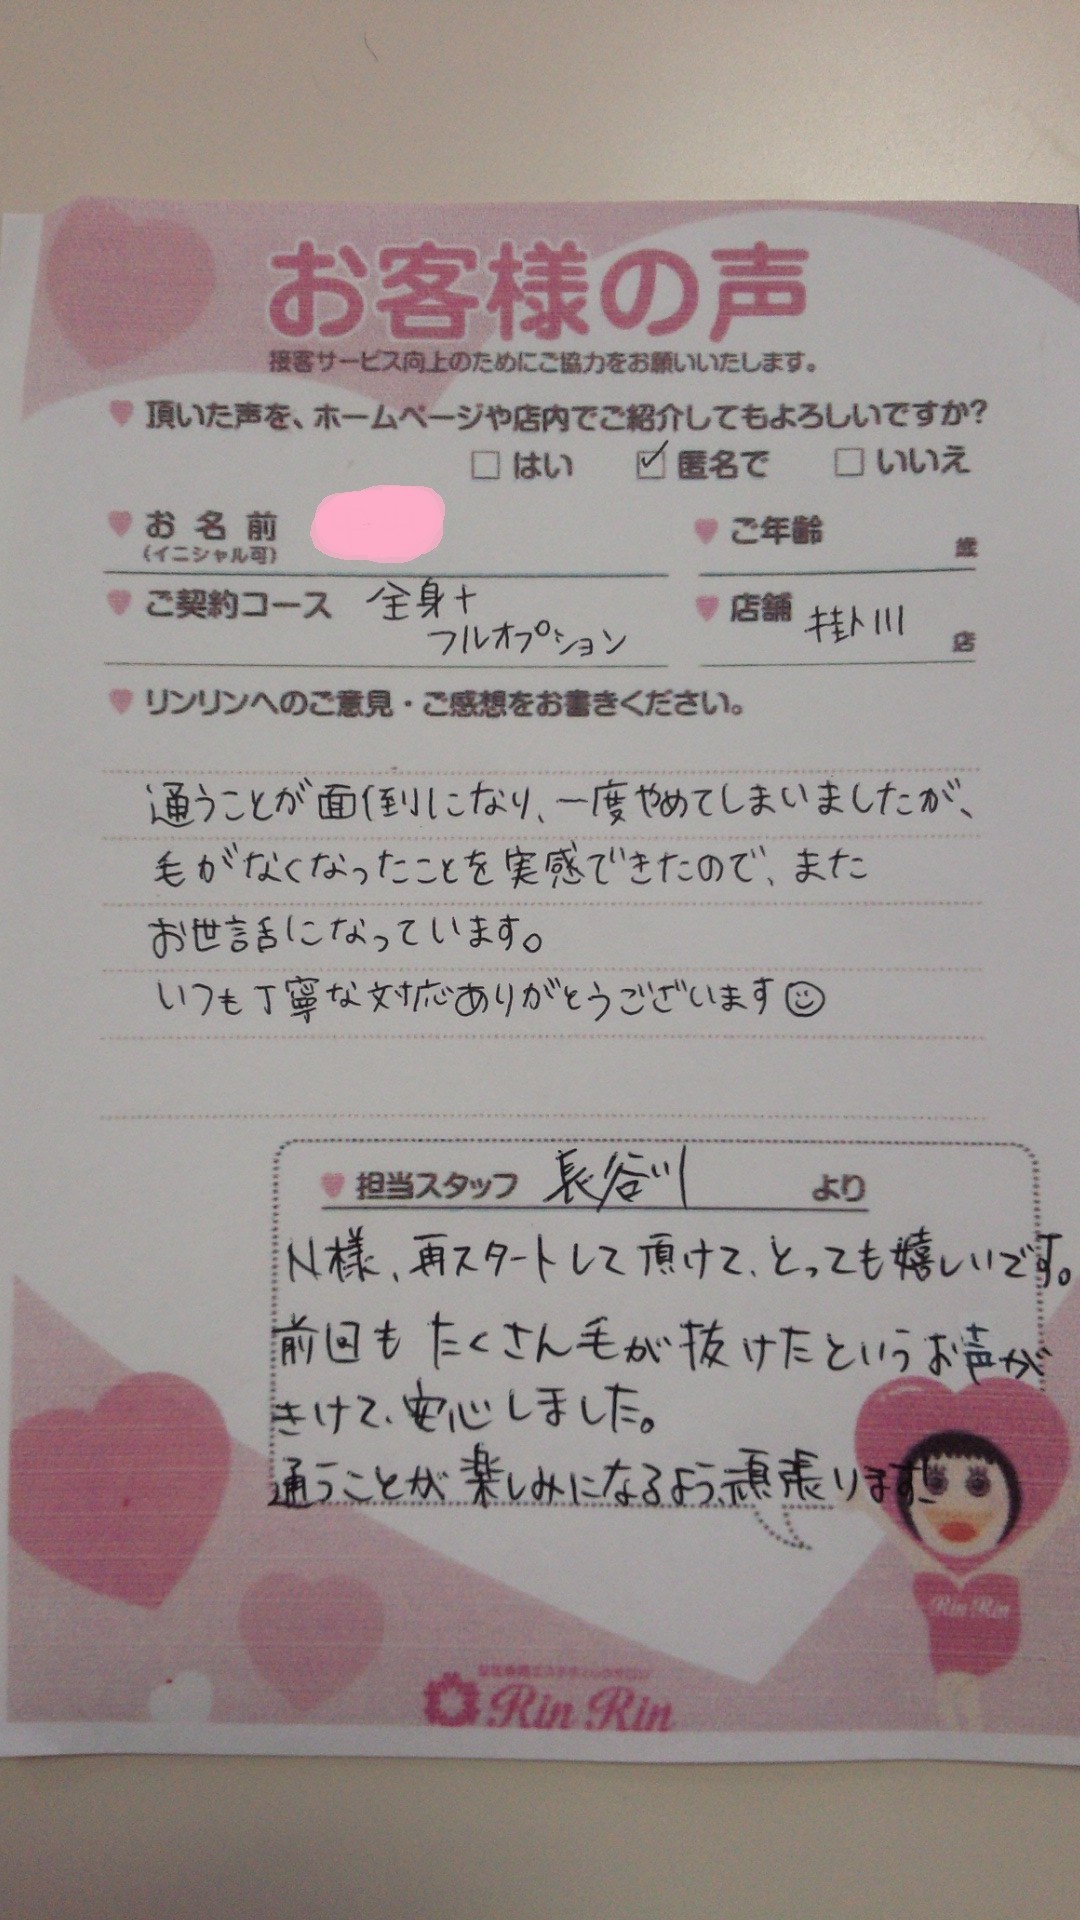 お客様の声
接客サービス向上のためにご協力をお願いいたします。
頂いた声を、ホームページや店内でご紹介してもよろしいですか?
□ はい ☑ 匿名で □ いいえ
お名前
(イニシャル可)
ご年齢 歳
ご契約コース 全身+
フルオプション
店舗 掛川 店
リンリンへのご意見・ご感想をお書きください。
通うことが面倒になり、一度やめてしまいましたが、
毛がなくなったことを実感できたので、また
お世話になっています。
いつも丁寧な対応ありがとうございます☺
担当スタッフ 長谷川 より
N様、再スタートして頂けて、とっても嬉しいです。
前回も たくさん毛が抜けたというお声が
きけて、安心しました。
通うことが楽しみになるよう、頑張ります!
Rin Rin
Rin Rin